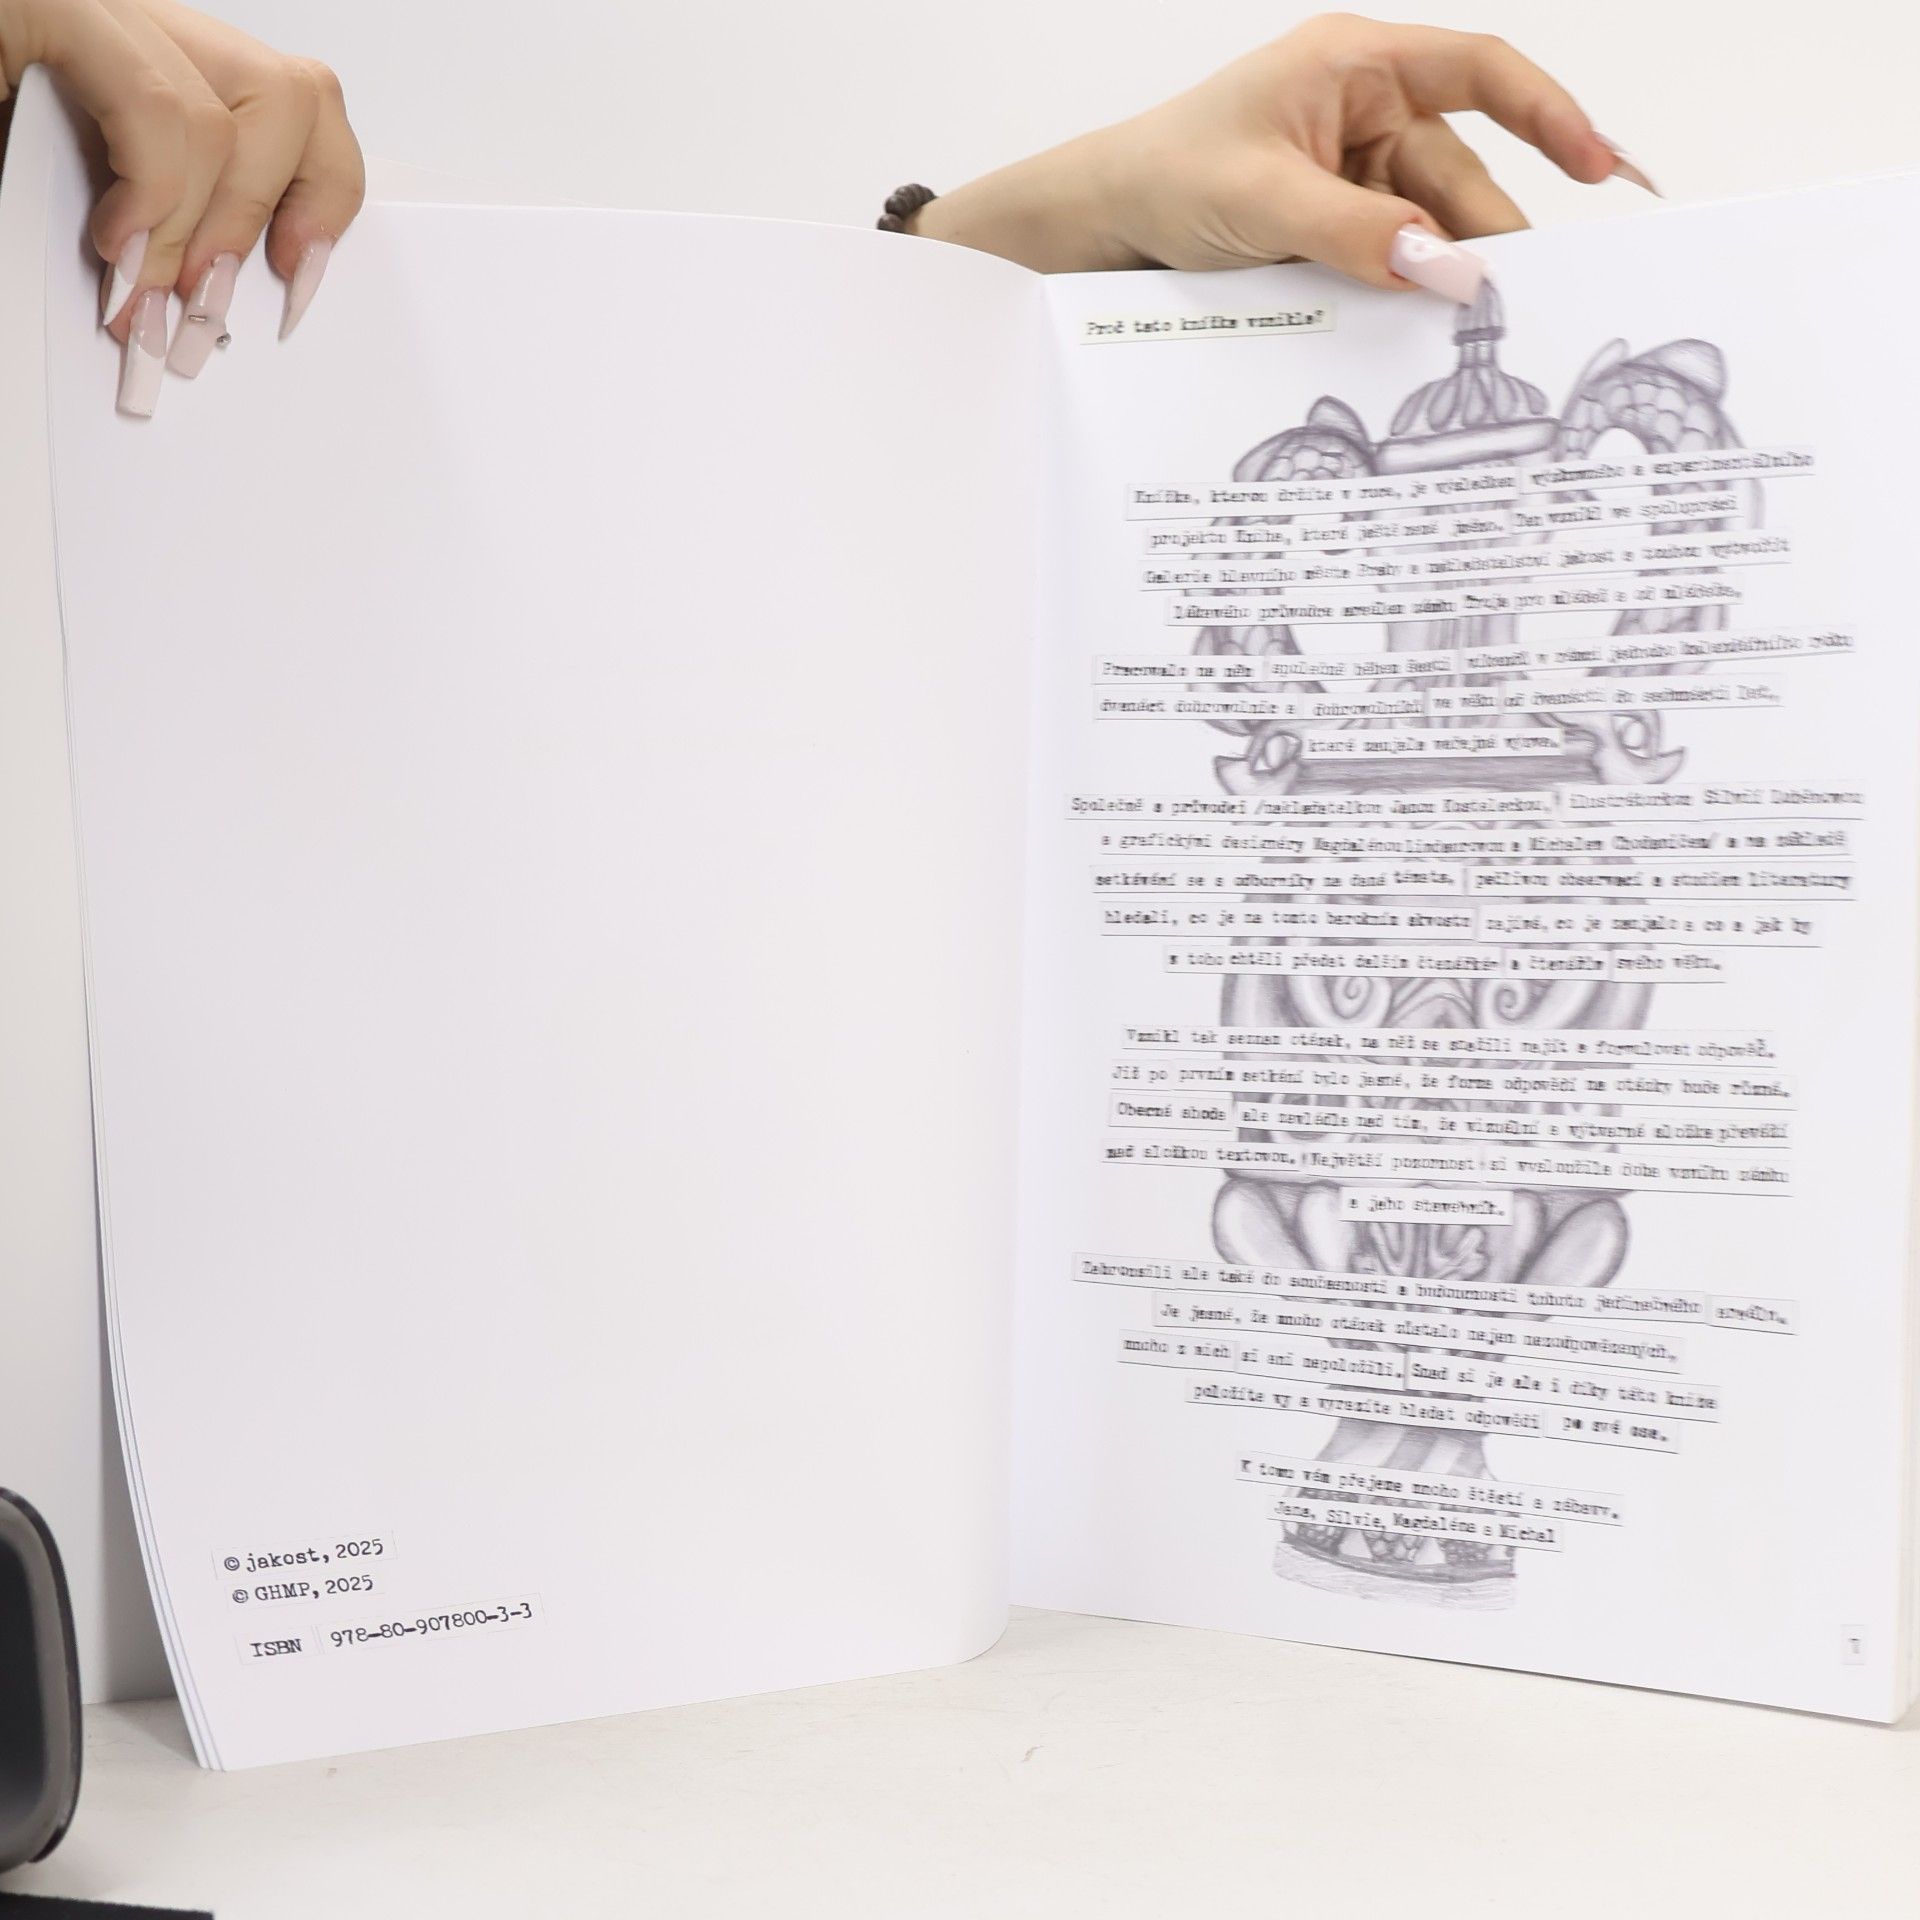 © jakost, 2025
© GHMP, 2025
ISBN 978-80-907800-3-3
Proč tato knížka vznikla?
Knížka, kterou držíte v ruce, je výsledkem výzkumného a experimentálního
projektu Kniha, která ještě nemá jméno. Ten vznikl ve spolupráci
Galerie hlavního města Prahy a nakladatelství jakost s touhou vytvořit
průvodce areálem zámku Troja pro mládež a od mládeže.
Pracovalo na něm společně během šesti víkendů v rámci jednoho kalendářního roku
dvanáct dobrovolnic a dobrovolníků ve věku od dvanácti do sedmnácti let,
které zaujala veřejná výzva.
Společně s průvodci /nakladatelkou Janou Kosteleckou, ilustrátorkou Silvií
a grafickými designéry Magdalénou a Michalem a na základě
setkávání se s odborníky na daná témata, pečlivou observací a studiem literatury
hledali, co je na tomto barokním skvostu zajímá, co je zaujalo a co a jak by
z toho chtěli předat dalším čtenářkám a čtenářům svého věku.
Vznikl tak seznam otázek, na něž se snažili najít a formulovat odpověď.
Již po prvním setkání bylo jasné, že forma odpovědí na otázky bude různá.
Obecná shoda ale navládla nad tím, že vizuální a výtvarná složka převáží
nad složkou textovou. Největší pozornost si vysloužila doba vzniku zámku
a jeho stavebník.
Zabrousili ale také do současnosti a budoucnosti tohoto jedinečného areálu.
Je jasné, že mnoho otázek zůstalo nejen nezodpovězených,
mnoho z nich si ani nepoložili. Snad si je ale i díky této knize
položíte vy a vyrazíte hledat odpovědi po své ose.
K tomu vám přejeme mnoho štěstí a zábavy.
Jana, Silvie, Magdaléna a Michal
1